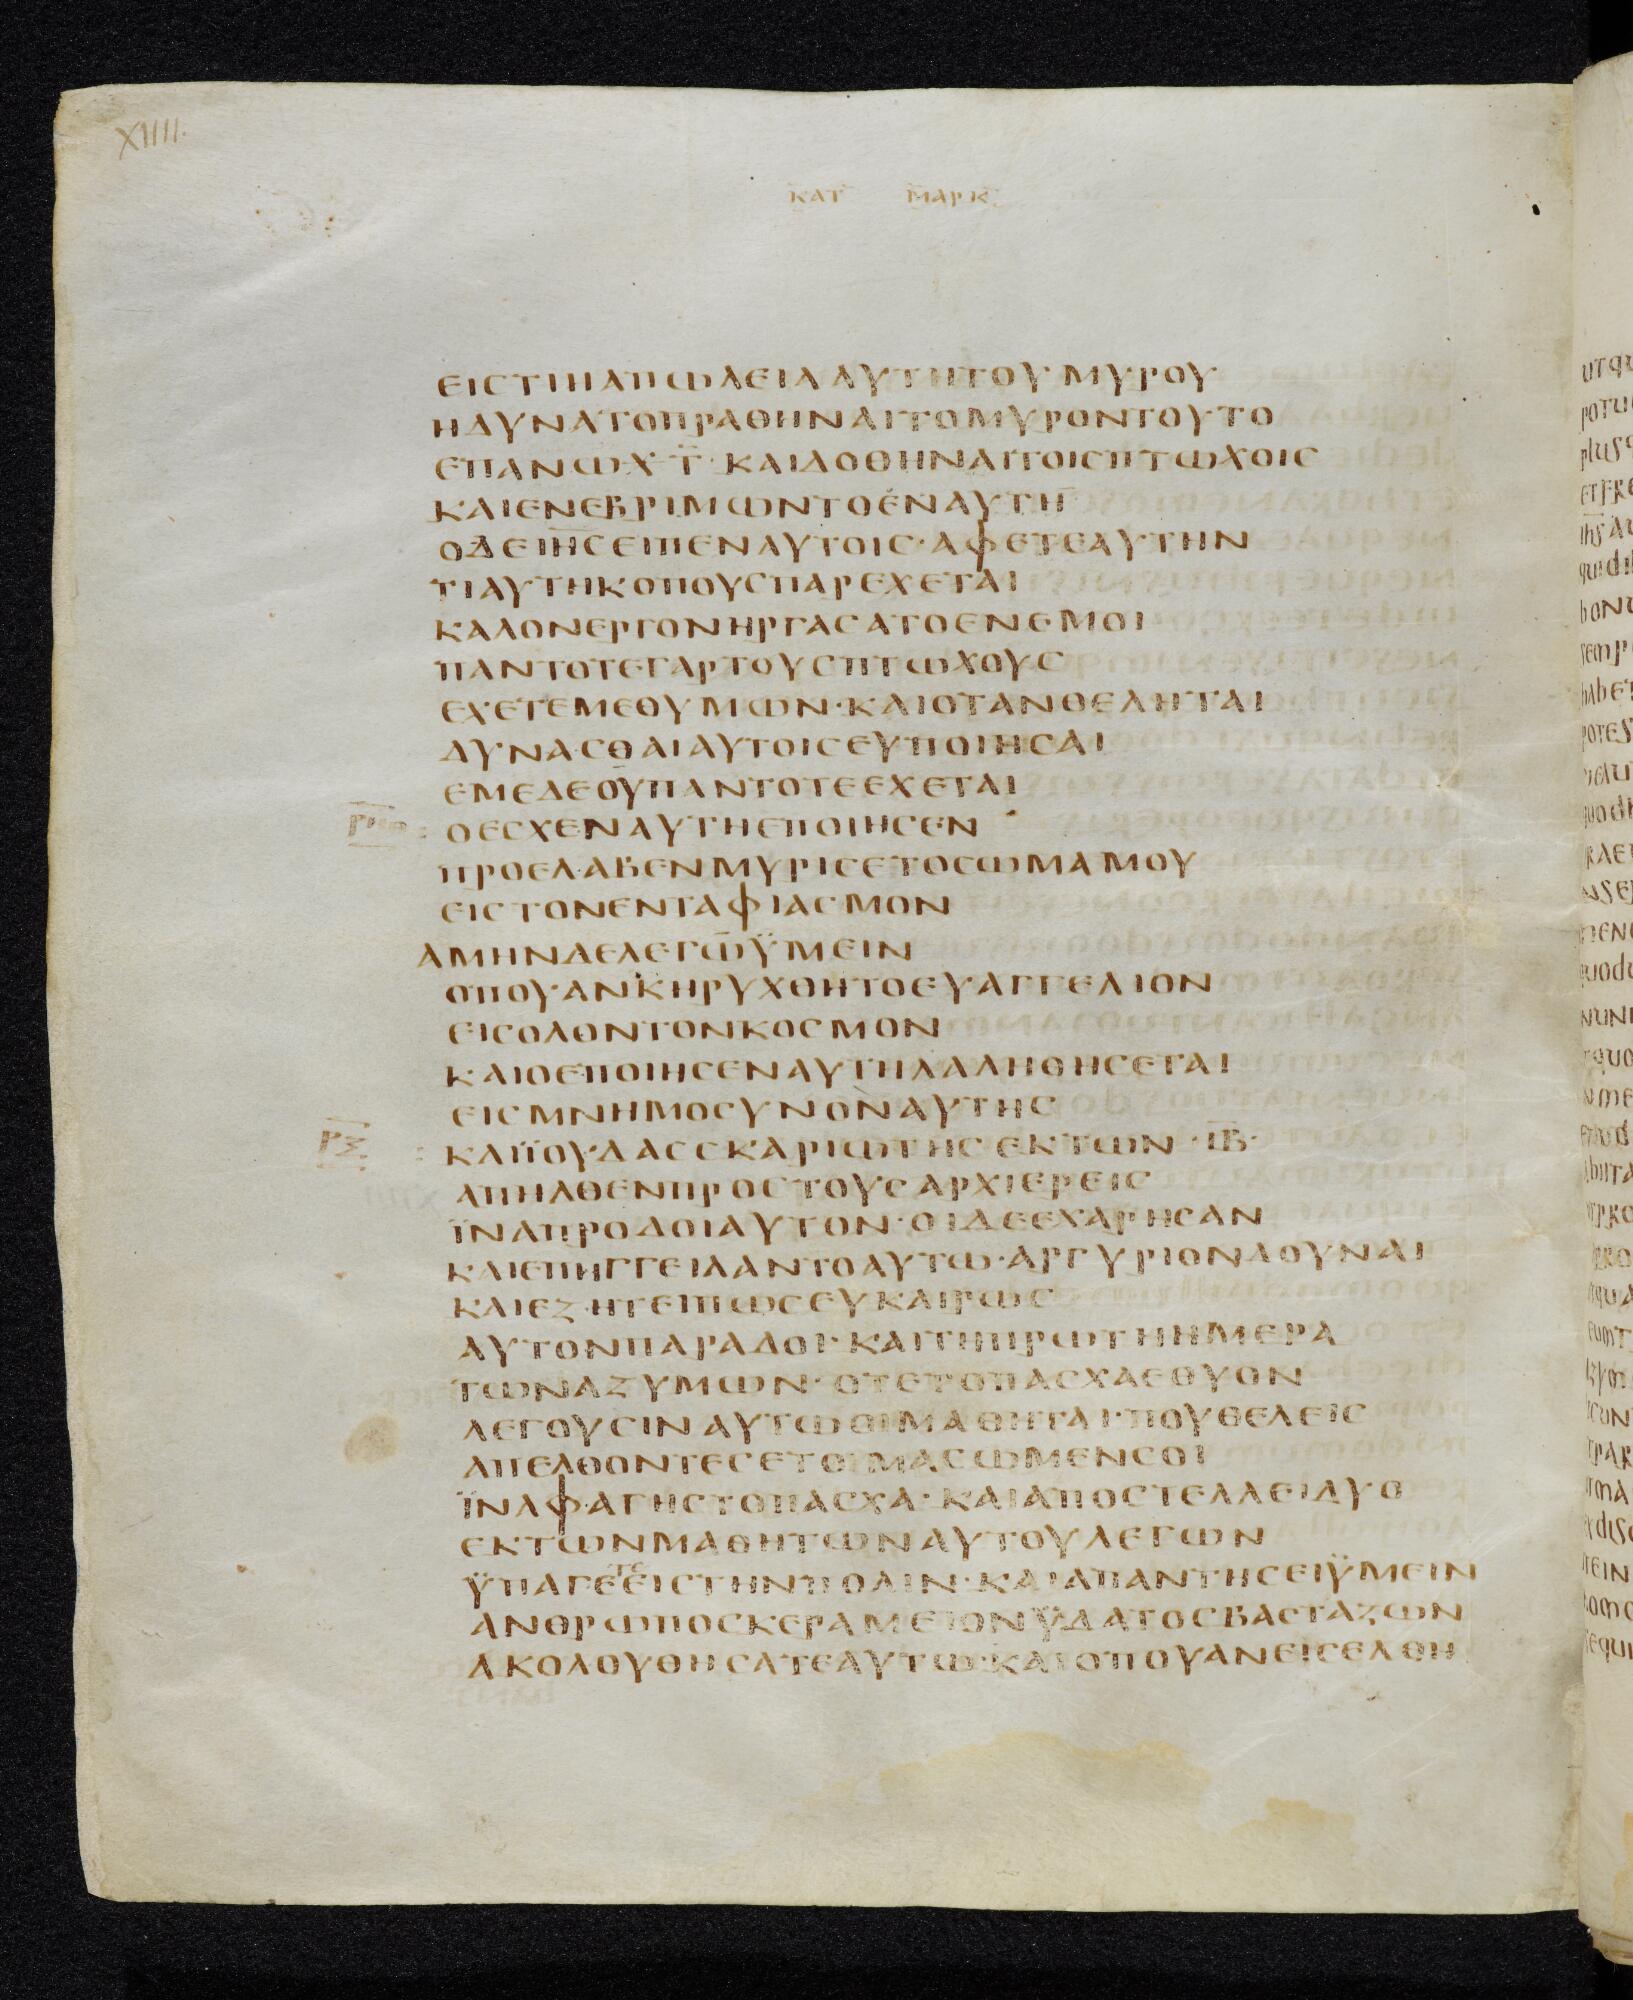 XIIII.
ΚΑΤ ΜΑΡΚ
ΕΙϹΤΙΗΑΠΩΛΕΙΑΑΥΤΗΤΟΥΜΥΡΟΥ
ΗΔΥΝΑΤΟΠΡΑΘΗΝΑΙΤΟΜΥΡΟΝΤΟΥΤΟ
ΕΠΑΝΩΧ·Τ̅·ΚΑΙΔΟΘΗΝΑΙΤΟΙϹΠΤΩΧΟΙϹ
ΚΑΙΕΝΕΒΡΙΜΩΝΤΟΕΝΑΥΤΗ
ΟΔΕΙΗ̅Ϲ̅ΕΙΠΕΝΑΥΤΟΙϹ·ΑΦΕΤΕΑΥΤΗΝ
ΤΙΑΥΤΗΚΟΠΟΥϹΠΑΡΕΧΕΤΑΙ
ΚΑΛΟΝΕΡΓΟΝΗΡΓΑϹΑΤΟΕΝΕΜΟΙ
ΠΑΝΤΟΤΕΓΑΡΤΟΥϹΠΤΩΧΟΥϹ
ΕΧΕΤΕΜΕΘΥΜΩΝ·ΚΑΙΟΤΑΝΘΕΛΗΤΑΙ
ΔΥΝΑϹΘΑΙΑΥΤΟΙϹΕΥΠΟΙΗϹΑΙ
ΕΜΕΔΕΟΥΠΑΝΤΟΤΕΕΧΕΤΑΙ
ΟΕϹΧΕΝΑΥΤΗΕΠΟΙΗϹΕΝ
ΠΡΟΕΛΑΒΕΝΜΥΡΙϹΕΤΟϹΩΜΑΜΟΥ
ΕΙϹΤΟΝΕΝΤΑΦΙΑϹΜΟΝ
ΑΜΗΝΔΕΛΕΓΩΫΜΕΙΝ
ΟΠΟΥΑΝΚΗΡΥΧΘΗΤΟΕΥΑΓΓΕΛΙΟΝ
ΕΙϹΟΛΟΝΤΟΝΚΟϹΜΟΝ
ΚΑΙΟΕΠΟΙΗϹΕΝΑΥΤΗΛΑΛΗΘΗϹΕΤΑΙ
ΕΙϹΜΝΗΜΟϹΥΝΟΝΑΥΤΗϹ
ΡΞ ΚΑΙΪΟΥΔΑϹϹΚΑΡΙΩΤΗϹΕΚΤΩΝ·Ι̅Β̅·
ΑΠΗΛΘΕΝΠΡΟϹΤΟΥϹΑΡΧΙΕΡΕΙϹ
ΪΝΑΠΡΟΔΟΙΑΥΤΟΝ·ΟΙΔΕΕΧΑΡΗϹΑΝ
ΚΑΙΕΠΗΓΓΕΙΛΑΝΤΟΑΥΤΩ·ΑΡΓΥΡΙΟΝΔΟΥΝΑΙ
ΚΑΙΕΖΗΤΕΙΠΩϹΕΥΚΑΙΡΩϹ
ΑΥΤΟΝΠΑΡΑΔΟΙ·ΚΑΙΤΗΠΡΩΤΗΗΜΕΡΑ
ΤΩΝΑΖΥΜΩΝ·ΟΤΕΤΟΠΑϹΧΑΕΘΥΟΝ
ΛΕΓΟΥϹΙΝΑΥΤΩΟΙΜΑΘΗΤΑΙ·ΠΟΥΘΕΛΕΙϹ
ΑΠΕΛΘΟΝΤΕϹΕΤΟΙΜΑϹΩΜΕΝϹΟΙ
ΪΝΑΦΑΓΗϹΤΟΠΑϹΧΑ·ΚΑΙΑΠΟϹΤΕΛΛΕΙΔΥΟ
ΕΚΤΩΝΜΑΘΗΤΩΝΑΥΤΟΥΛΕΓΩΝ
ΫΠΑΓΕΤΕΕΙϹΤΗΝΠΟΛΙΝ·ΚΑΙΑΠΑΝΤΗϹΕΙΫΜΕΙΝ
ΑΝΘΡΩΠΟϹΚΕΡΑΜΕΙΟΝΫΔΑΤΟϹΒΑϹΤΑΖΩΝ
ΑΚΟΛΟΥΘΗϹΑΤΕΑΥΤΩ·ΚΑΙΟΠΟΥΑΝΕΙϹΕΛΘΗ